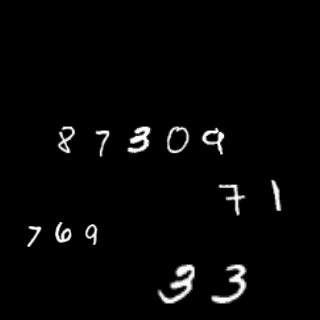 87309
71
769
33